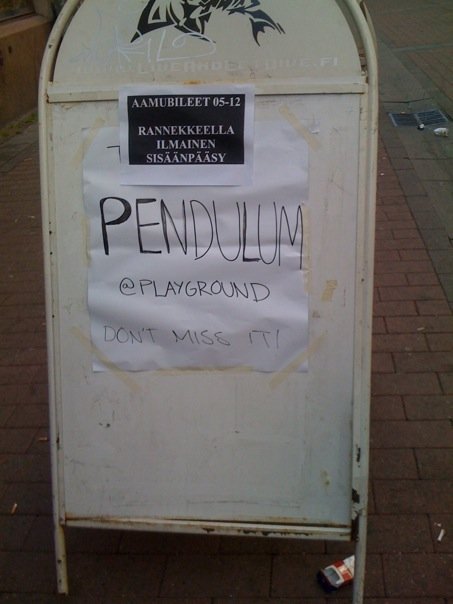 AAMUBILEET 05-12
RANNEKKEELLA
ILMAINEN
SISÄÄNPÄÄSY
PENDULUM
@PLAYGROUND
DON'T MISS IT!